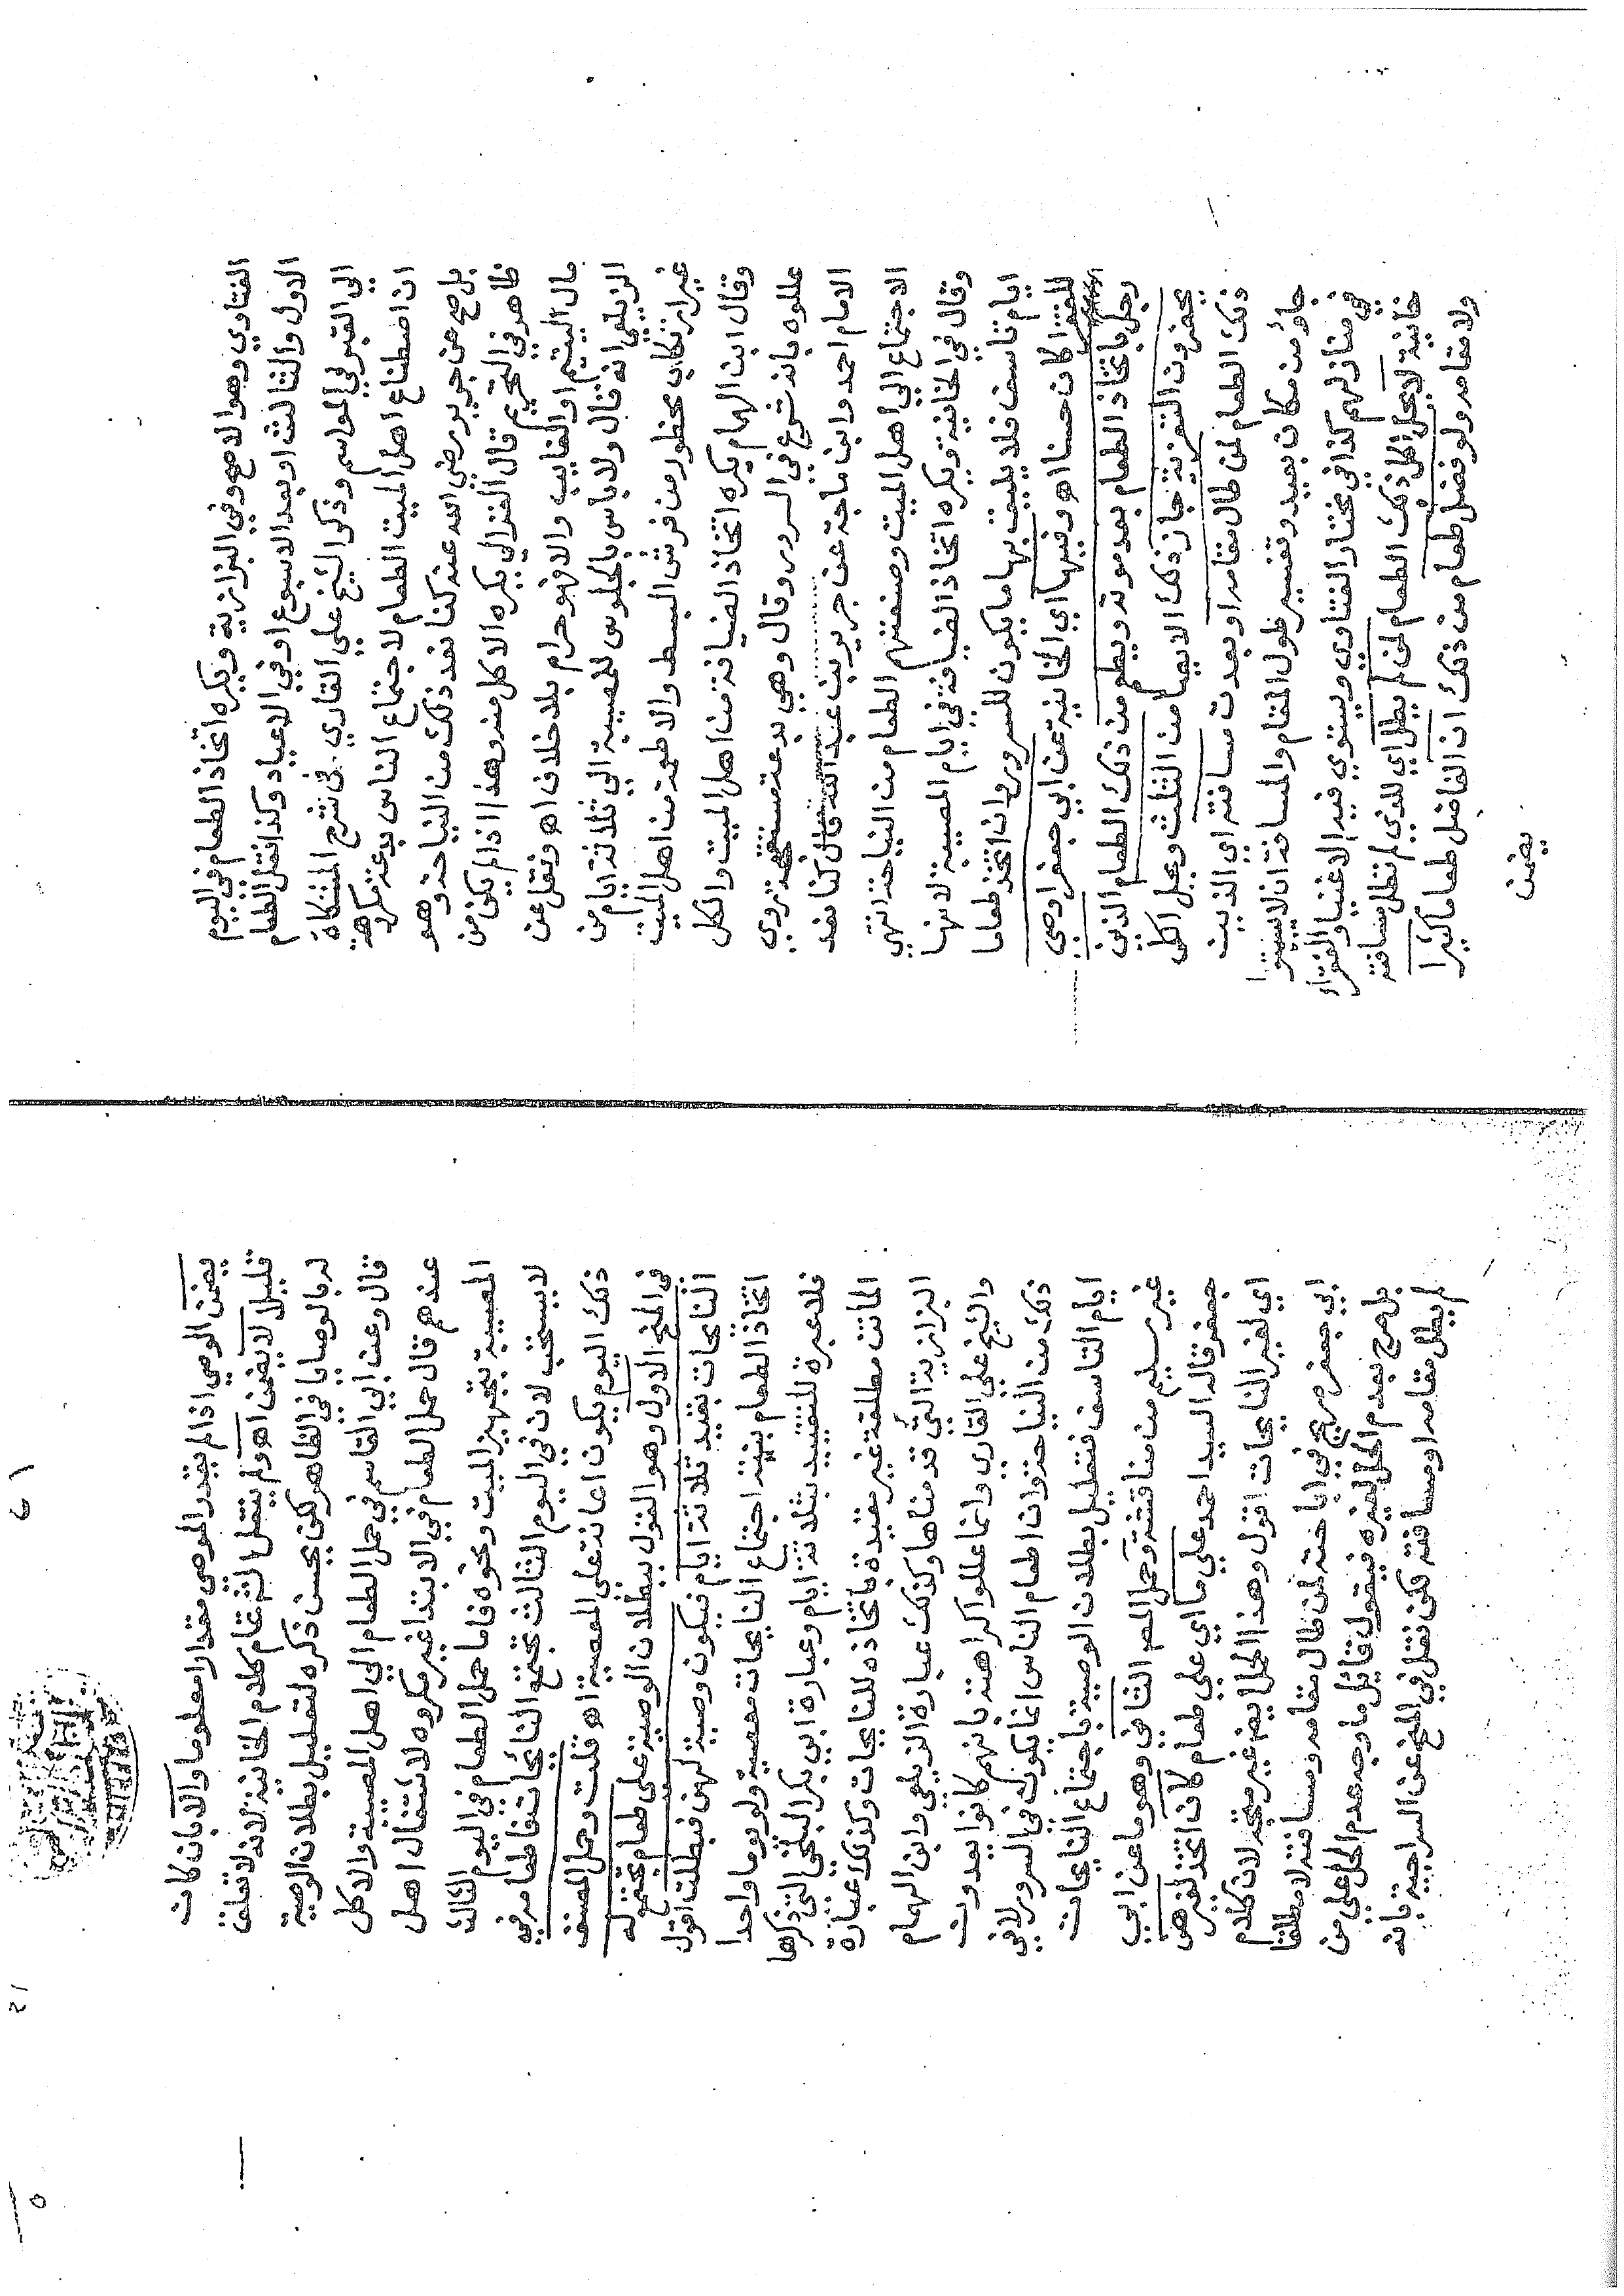 الفتاوي وهو الاصح وفي البزازية ويكره اتخاذ الطعام في اليوم
الاول والثالث او بعد الاسبوع او في الاعياد وكذا نقل الطعام
الي القبر في المواسم وذكر الشيخ علي القاري في شرح المشكاة
ان اصطناع اهل الميت الطعام لاجتماع الناس بدعة مكروهة
بل صح عن جرير رضي الله عنه كنا نعد ذلك من النياحة وهو
ظاهر في التحريم قال الغزالي يكره الاكل منه وهذا اذا لم يكن من
مال اليتيم او الغايب والا فهو حرام بلا خلاف اهـ ونقل عن
الزيلعي انه قال ولا باس بالجلوس للمصيبة الي ثلاثة ايام من
غير ارتكاب محظور من فرش البسط والاطعمة من اهل الميت
وقال ابن الهمام يكره اتخاذ الضيافة من اهل الميت والكل
عللوه بانه شرع في السرور وقال وهي بدعة مستقبحة روي
الامام احمد وابن ماجة عن جرير بن عبد الله قال كنا نعد
الاجتماع الي اهل الميت وصنعتهم الطعام من النياحة انتهي
وقال في الخانية ويكره اتخاذ الضيافة في ايام المصيبة لانها
ايام تاسف فلا يليق بها ما يكون للسرور وان اتخذ طعاما
للفقرا كان حسنا اهـ وفيها اي الخانية عن ابي جعفر اوصي
رجل باتخاذ الطعام بعد موته ويطعم من ذلك الطعام الذين
يحضرون التعزية جاز ذلك الايصا من الثلث ويحل اكل
ذلك الطعام لمن طال مقامه او بعدت مسافته اي الذين
جاؤ من مكان بعيد وتفسير طول المقام والمسافة ان لا يبيتوا
في منازلهم كذا في مختار الفتاوي ويستوي فيه الاغنيا والفقرا
خانية لا يحل اكل ذلك الطعام لمن لم يطل اي للذي لم تطل مسافته
ولا مقامه ولو فضل طعام من ذلك ان الفاضل طعاما كثيرا
يضمن
يضمن الوصي اذا لم يقدر الموصي مقدارا معلوما والا بان كان
قليلا لا يضمن اهـ ولم ينقل الشم تمام كلام الخانية لانه لا تعلق
له بالوصايا في الظاهر لكن يحسن ذكره لتعليل بطلان الوصية
قال وعن ابي القاسم في حمل الطعام الي اهل المصيبة والاكل
عندهم قال حمل الطعام في الابتدا غير مكروه لاشتغال اهل
المصيبة بتجهيز الميت ونحوه فاما حمل الطعام في اليوم الثالث
لا يستحب لان في اليوم الثالث تجتمع النائحات فاطعامهن في
ذلك اليوم يكون اعانة علي المعصية اهـ قلت وحمل المصنف
في المنح الاول وهو القول ببطلان الوصية علي طعام يجتمع له
النايحات بقيد ثلاثة ايام فيكون وصية لهن فبطلت اقول
اتخاذ الطعام بنية اجتماع النايحات معصية ولو يوما واحدا
فلا عبرة للتقييد بثلاثة ايام وعبارة ابي بكر البلخي التي ذكرها
المأتن مطلقة غير مقيدة باتخاذه للنايحات وكذلك عبارة
البزازية التي قدمناها وكذلك عبارة الزيلعي وابن الهمام
والشيخ علي القاري وانما عللوا كراهته بانهم كانوا يعدون
ذلك من النياحة وان اطعام الناس انما يكون في السرور لا في
ايام التاسف فتعليل بطلان الوصية باجتماع النايحات
غير سليم من مناقشة وحمل المص الثاني وهو ما عن ابي
جعفر قاله السيد احمد علي ما اي علي طعام كان اتخذ لغيرهن
اي لغير النايحات اقول وهذا الحمل ايضا غير متجه لان كلام
ابي جعفر صريح في اباحته لمن طال مقامه ومسافته لا مطلقا
بل صرح بعدم الحل لغيره فيقول قائل ما وجه عدم الحل علي من
لم يطل مقامه او مسافته لكن نقل في المنح عن السراجية بانه